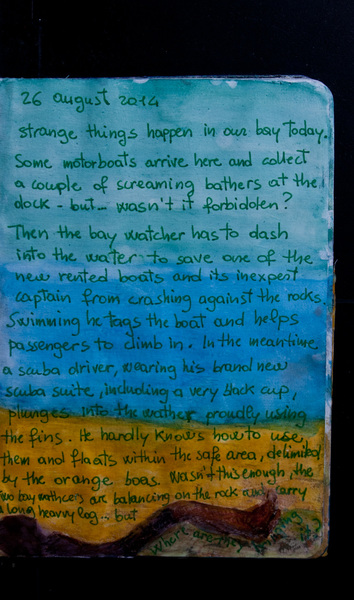 26 august 2014
strange things happen in our bay today.
Some motorboats arrive here and collect
a couple of screaming bathers at the
dock - but... wasn't it forbidden?
Then the bay watcher has to dash
into the water to save one of the
new rented boats and its inexpert
captain from crashing against the rocks.
Swimming he tags the boat and helps
passengers to climb in. In the meantime,
a scuba driver, wearing his brand new
scuba suite, including a very black cup,
plunges into the wather proudly using
the fins. He hardly knows how to use
them and floats within the safe area, delimited
by the orange boas. Wasn't this enough, the
two bay wathcers are balancing on the rock and carry
a long heavy log... but
What are they